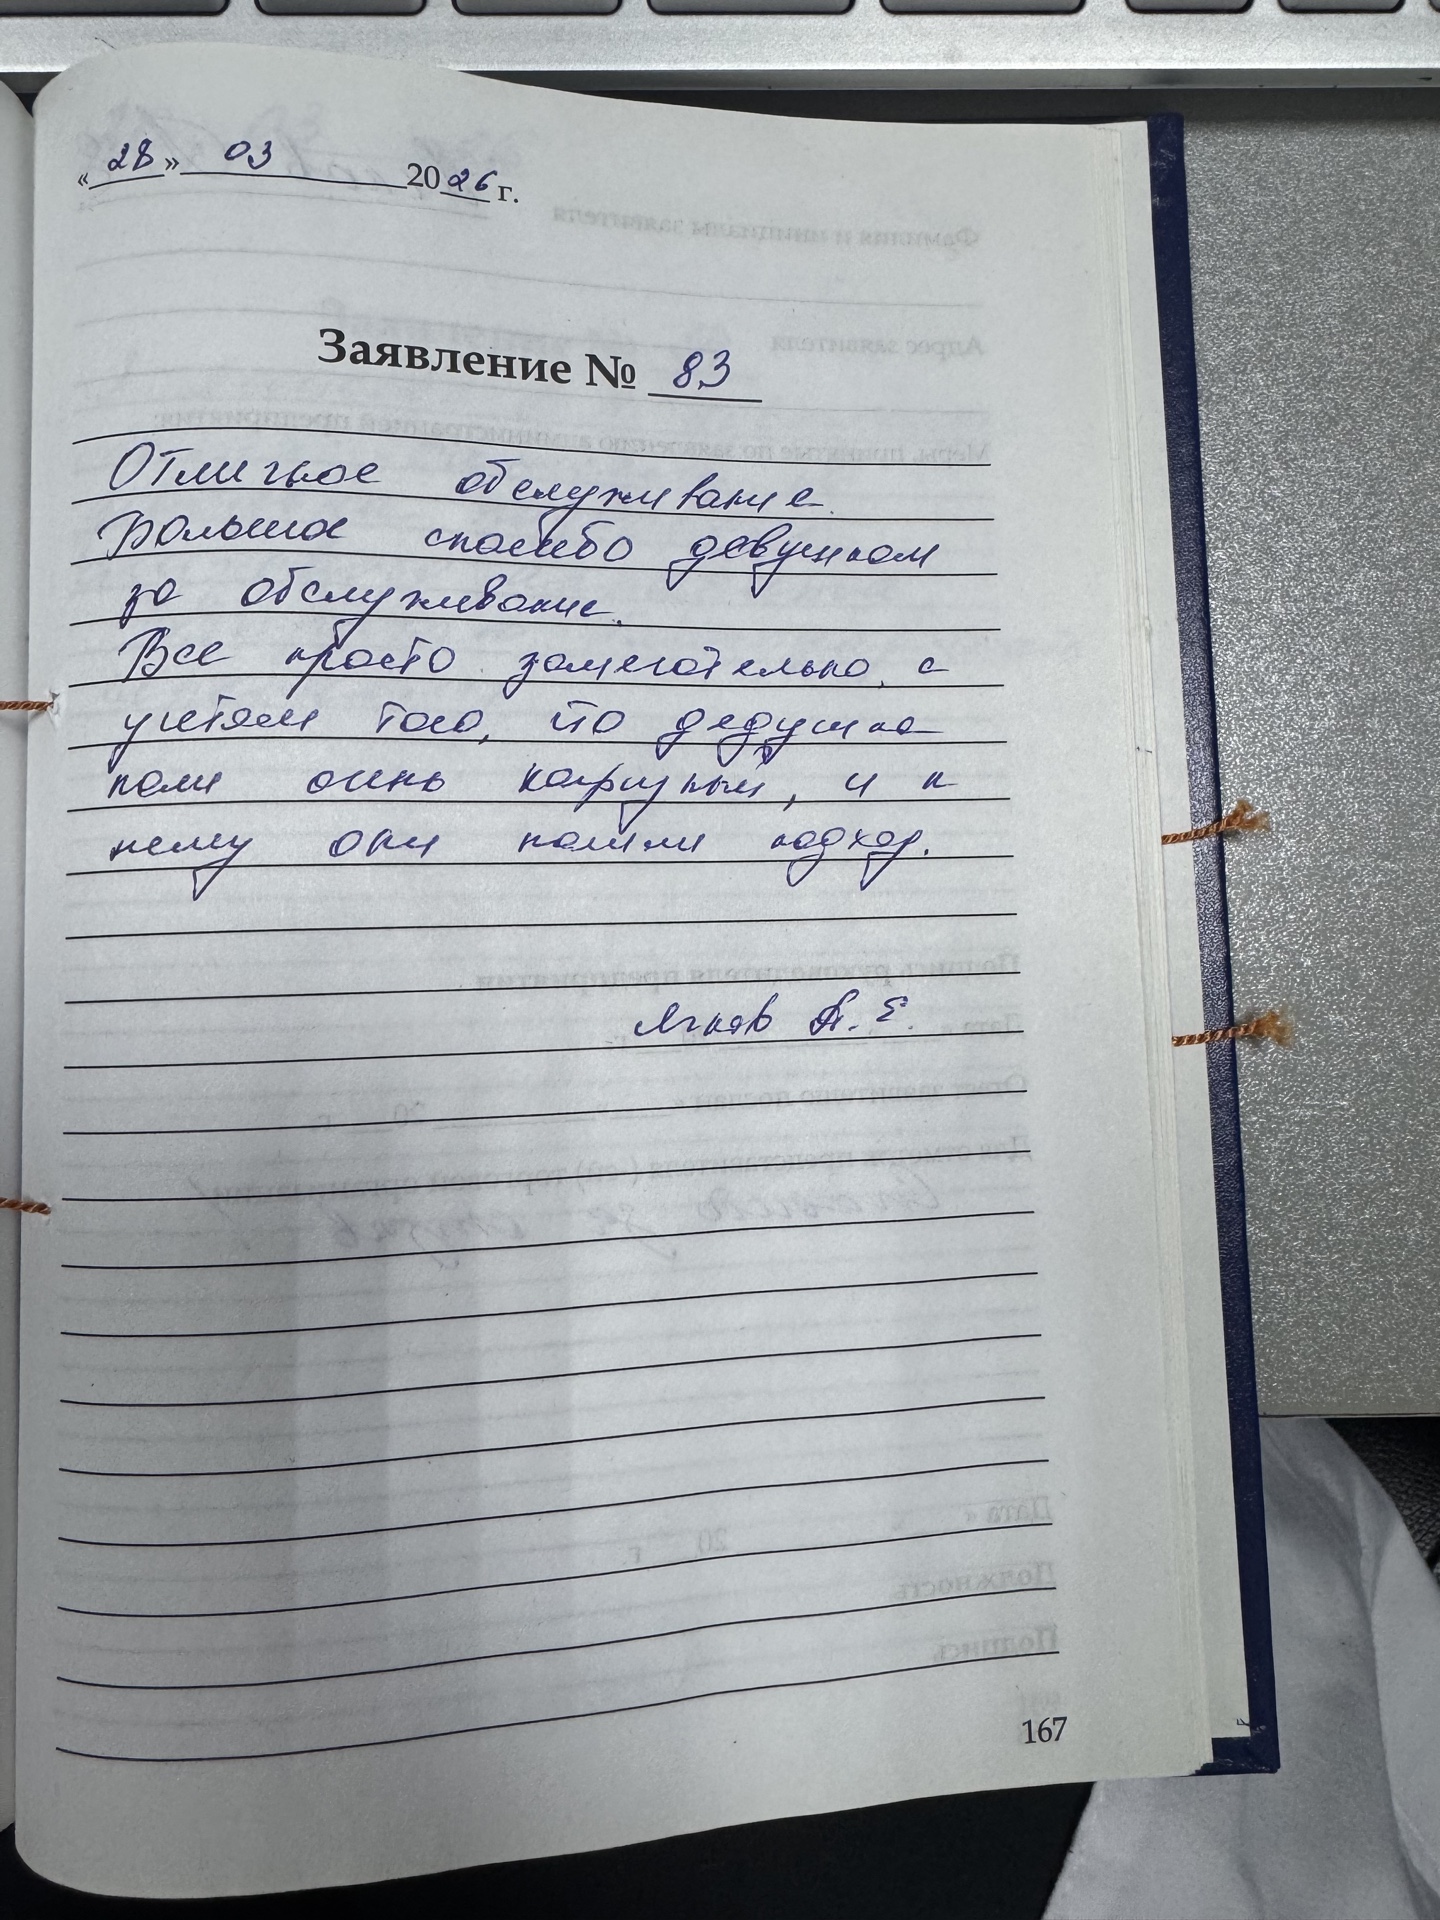 «28» 03 2026 г.
Заявление № 83
Отличное обслуживание.
Большое спасибо девушкам
за обслуживание.
Все просто замечательно, с
учетом того, что дедушка
наш очень капризный, и к
нему они нашли подход.
А. Е.
167